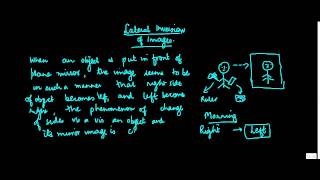 Lateral Inversion
of Images
When an object is put in front of
plane mirror, the image seems to be
in such a manner that right side
of object becomes left, and left become
right, the phenomenon of change
of sides vis a vis an object and
its mirror image is c
Ruler
Morning
Right → Left